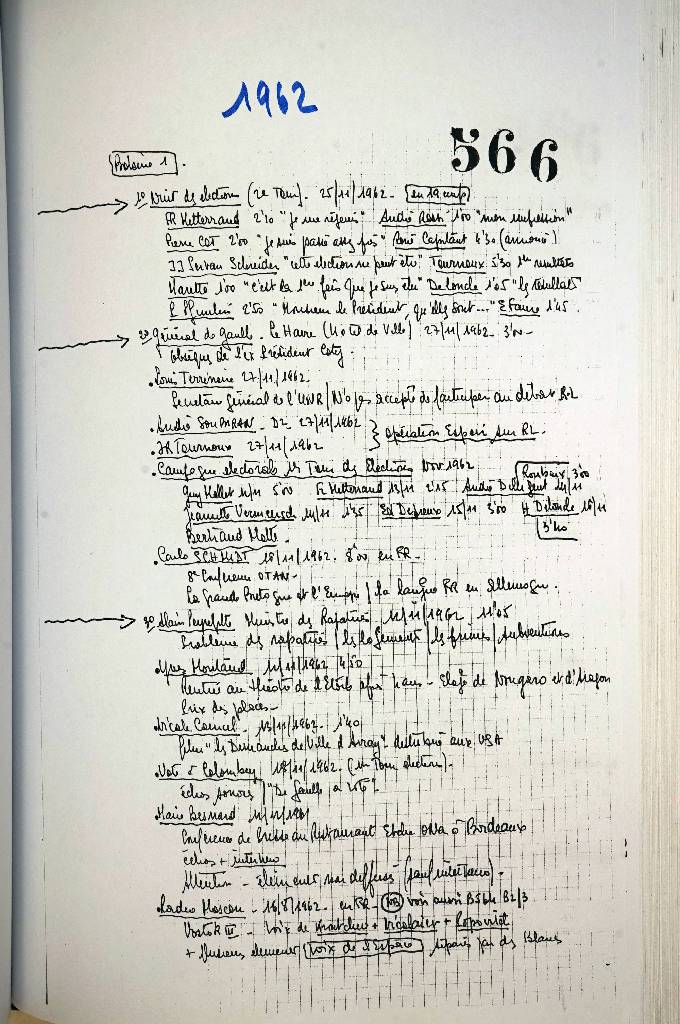 1962
566
Bobine 1.
1° Nuit des élections (2e Tour). 25/11/1962. en 19 cm/s
FR Mitterrand 2'10 "je me réjouis" André Rossi 1'00 "mon impression"
Pierre COT 2'00 "je suis passé assez près" René Capitant 4'30 (annoncé)
JJ Servan Schreiber "cette élection ne peut être" Tournoux 5'30 1er résultats
1'00 "c'est la 1ère fois que je suis élu" Delonde 1'05 "les résultats
2'50 "Monsieur le Président, qu'elles sont..." E Faure 1'45.
2° Général de Gaulle. Le Havre (Hôtel de Ville) 27/11/1962. 3'00-
obsèques de l'ex Président Coty.
. Louis Terrenoire 27/11/1962.
Secrétaire Général de l'UNR / N'a pas accepté de participer au débat R-L
. André SOUBIRAN - D2 27/11/1962
. JR Tournoux 27/11/1962 } opération Espoir sur RL.
. Campagne électorale 1er Tour des Elections Nov 1962 Roubaix 3'00
Guy Mollet 11/11 5'00 F. Mitterrand 13/11 2'15 André Diligent 14/11
Jeannette Vermeersch 14/11 1'35 Ed Depreux 15/11 3'00 H Delonde 18/11
Bertrand Motte. 3'40
. Carlo SCHMIDT 18/11/1962. 8'00 en FR-
8e Conférence OTAN-
La Grande Bretagne et l'Europe / la langue FR en Allemagne.
3° Alain Peyrefitte Ministre des Rapatriés 11/11/1962 11'05
Problème des rapatriés / les logements / les primes / subventions
. Yves Montand 11/11/1962 4'50
Rentrée au théâtre de l'Etoile après 4 ans - Eloge de Nougaro et d'Aragon
Prix des places-
. Nicole Courcel. 13/11/1962. 1'40
film "les Dimanches de Ville d'Avray" distribué aux USA
. Vote à Colombey 18/11/1962. (1er Tour élections).
échos sonores / "De Gaulle a voté".
. Marie Besnard
Conférence de Presse au Restaurant à Bordeaux
échos + interview
Attention - éléments non diffusés (sauf interview).
. Radio Moscou. 16/8/1962. en FR - voir aussi B564 B2/3
Vostok III - Voix de + Nicolaiev + Popovitch
+ plusieurs éléments Voix de l'Espace séparés par des blancs